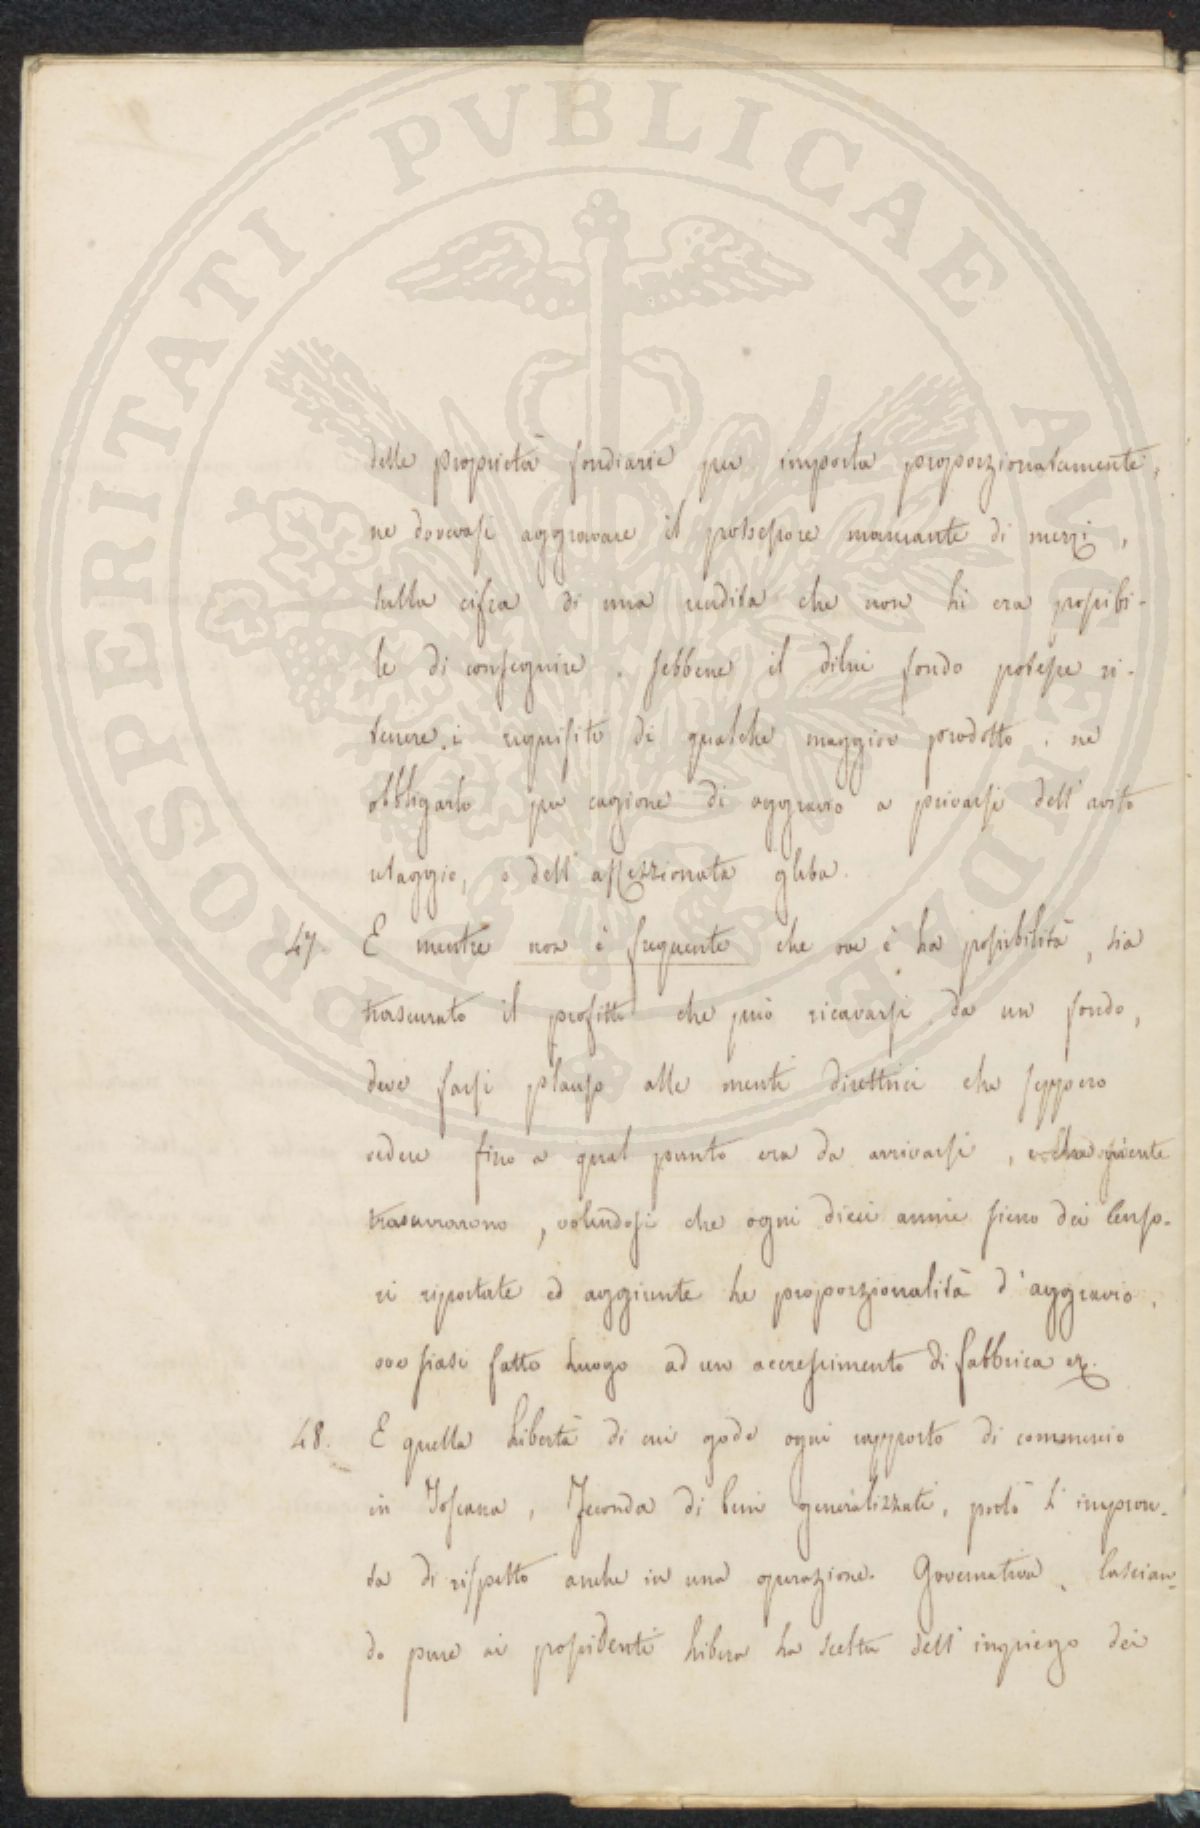 PROSPERITATI PVBLICAE AVGENDAE
delle proprietà fondiarie per imposta proporzionatamente,
ne dovevasi aggravare il possessore mancante di mezzi,
sulla cifra di una rendita che non li era possibi-
le di conseguire. sebbene il dilui fondo potesse ri-
tenere i requisiti di qualche maggior prodotto; ne
obbligarlo per cagione di aggravio a privarsi dell'avito
, o dell'affezzionata gleba.
47. E mentre non è frequente che ove è la possibilità, sia
trascurato il profitto che può ricavarsi da un fondo,
deve farsi plauso alle menti direttrici che seppero
vedere fino a qual punto era da arrivarsi,
trascurarono, volendosi che ogni dieci anni sieno dei Censo-
ri riportate ed aggiunte le proporzionalità d'aggravio,
ove siasi fatto luogo ad un accrescimento di fabbrica
48. E quella libertà di cui gode ogni rapporto di commercio
in Toscana, feconda di beni generalizzati, portò l'impron-
ta di rispetto anche in una operazione Governativa, lascian-
do pure ai possidenti libera la scelta dell'impiego dei